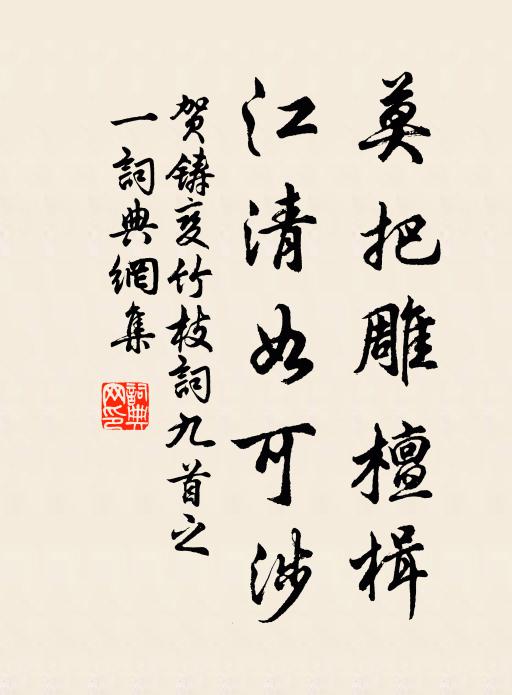 莫把雕檀楫
江清如可涉
贺铸变竹枝詞九首之
一詞典網集
詞典
网印